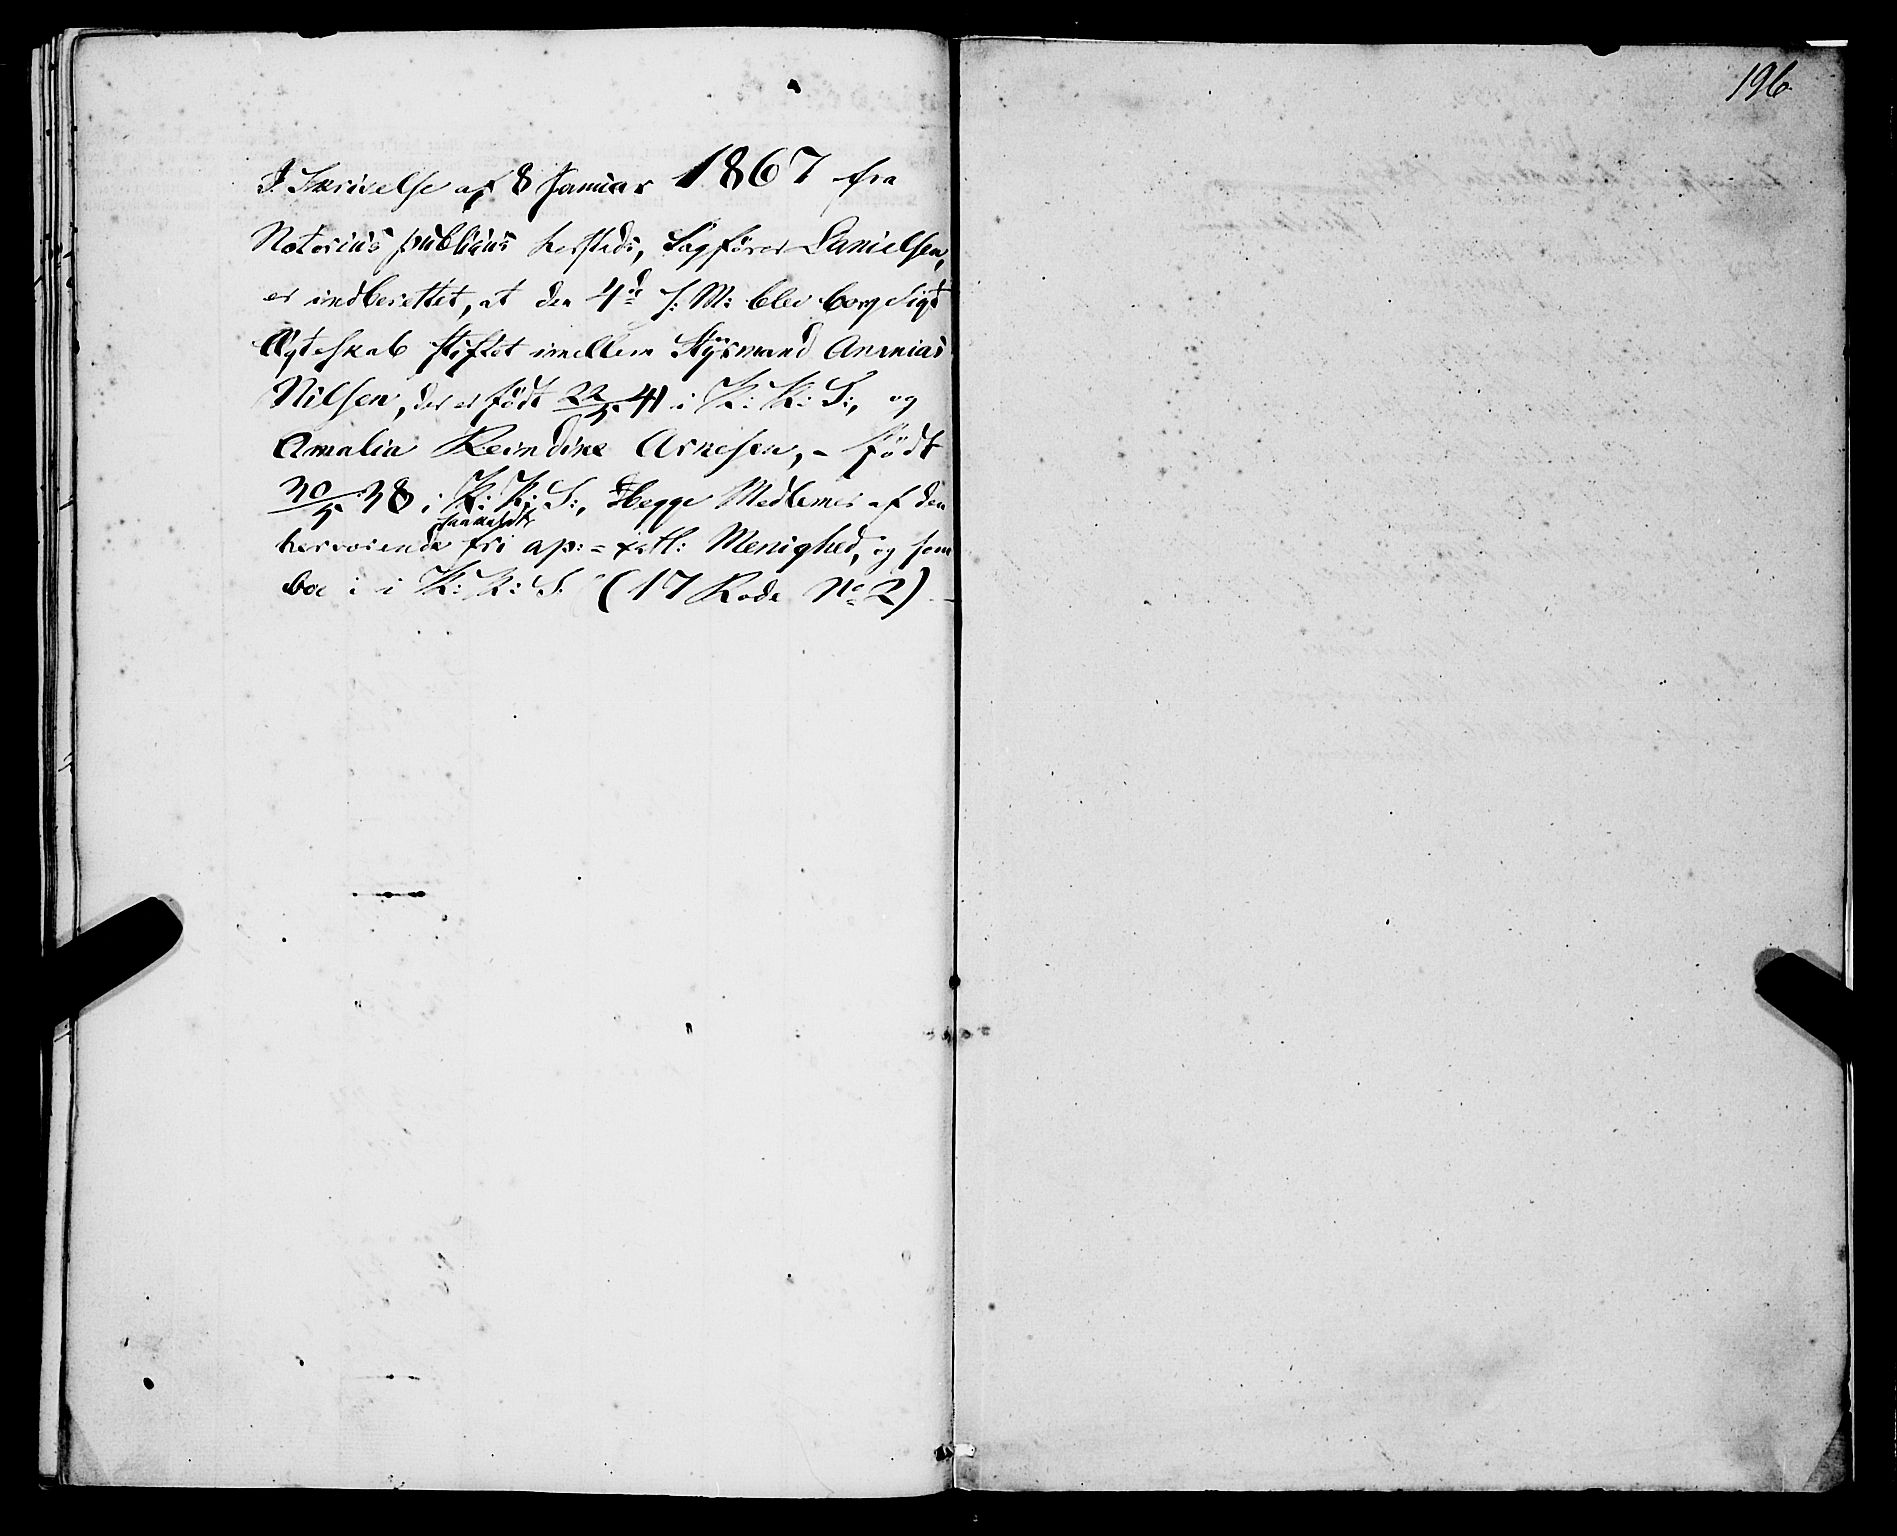 I Skrivelse af 8 Januar 1867 fra
Notarius publicus hersteds, Sagfører Danielsen,
er indberettet, at den 4de f: M: blev borgerligt
Ægteskab stiftet imellem Styrmand Ananias
Nilsen, der er født 22/5 41 i K: K: S:, og
Amalia Reindine Arnesen, - født
30/5 38 i K: K: S:, Begge Medlemer af den
saakaldte
herværende fri ap: = xstl: Menighed, og som
boe i K: K: S: (17 Rode No 2)
196